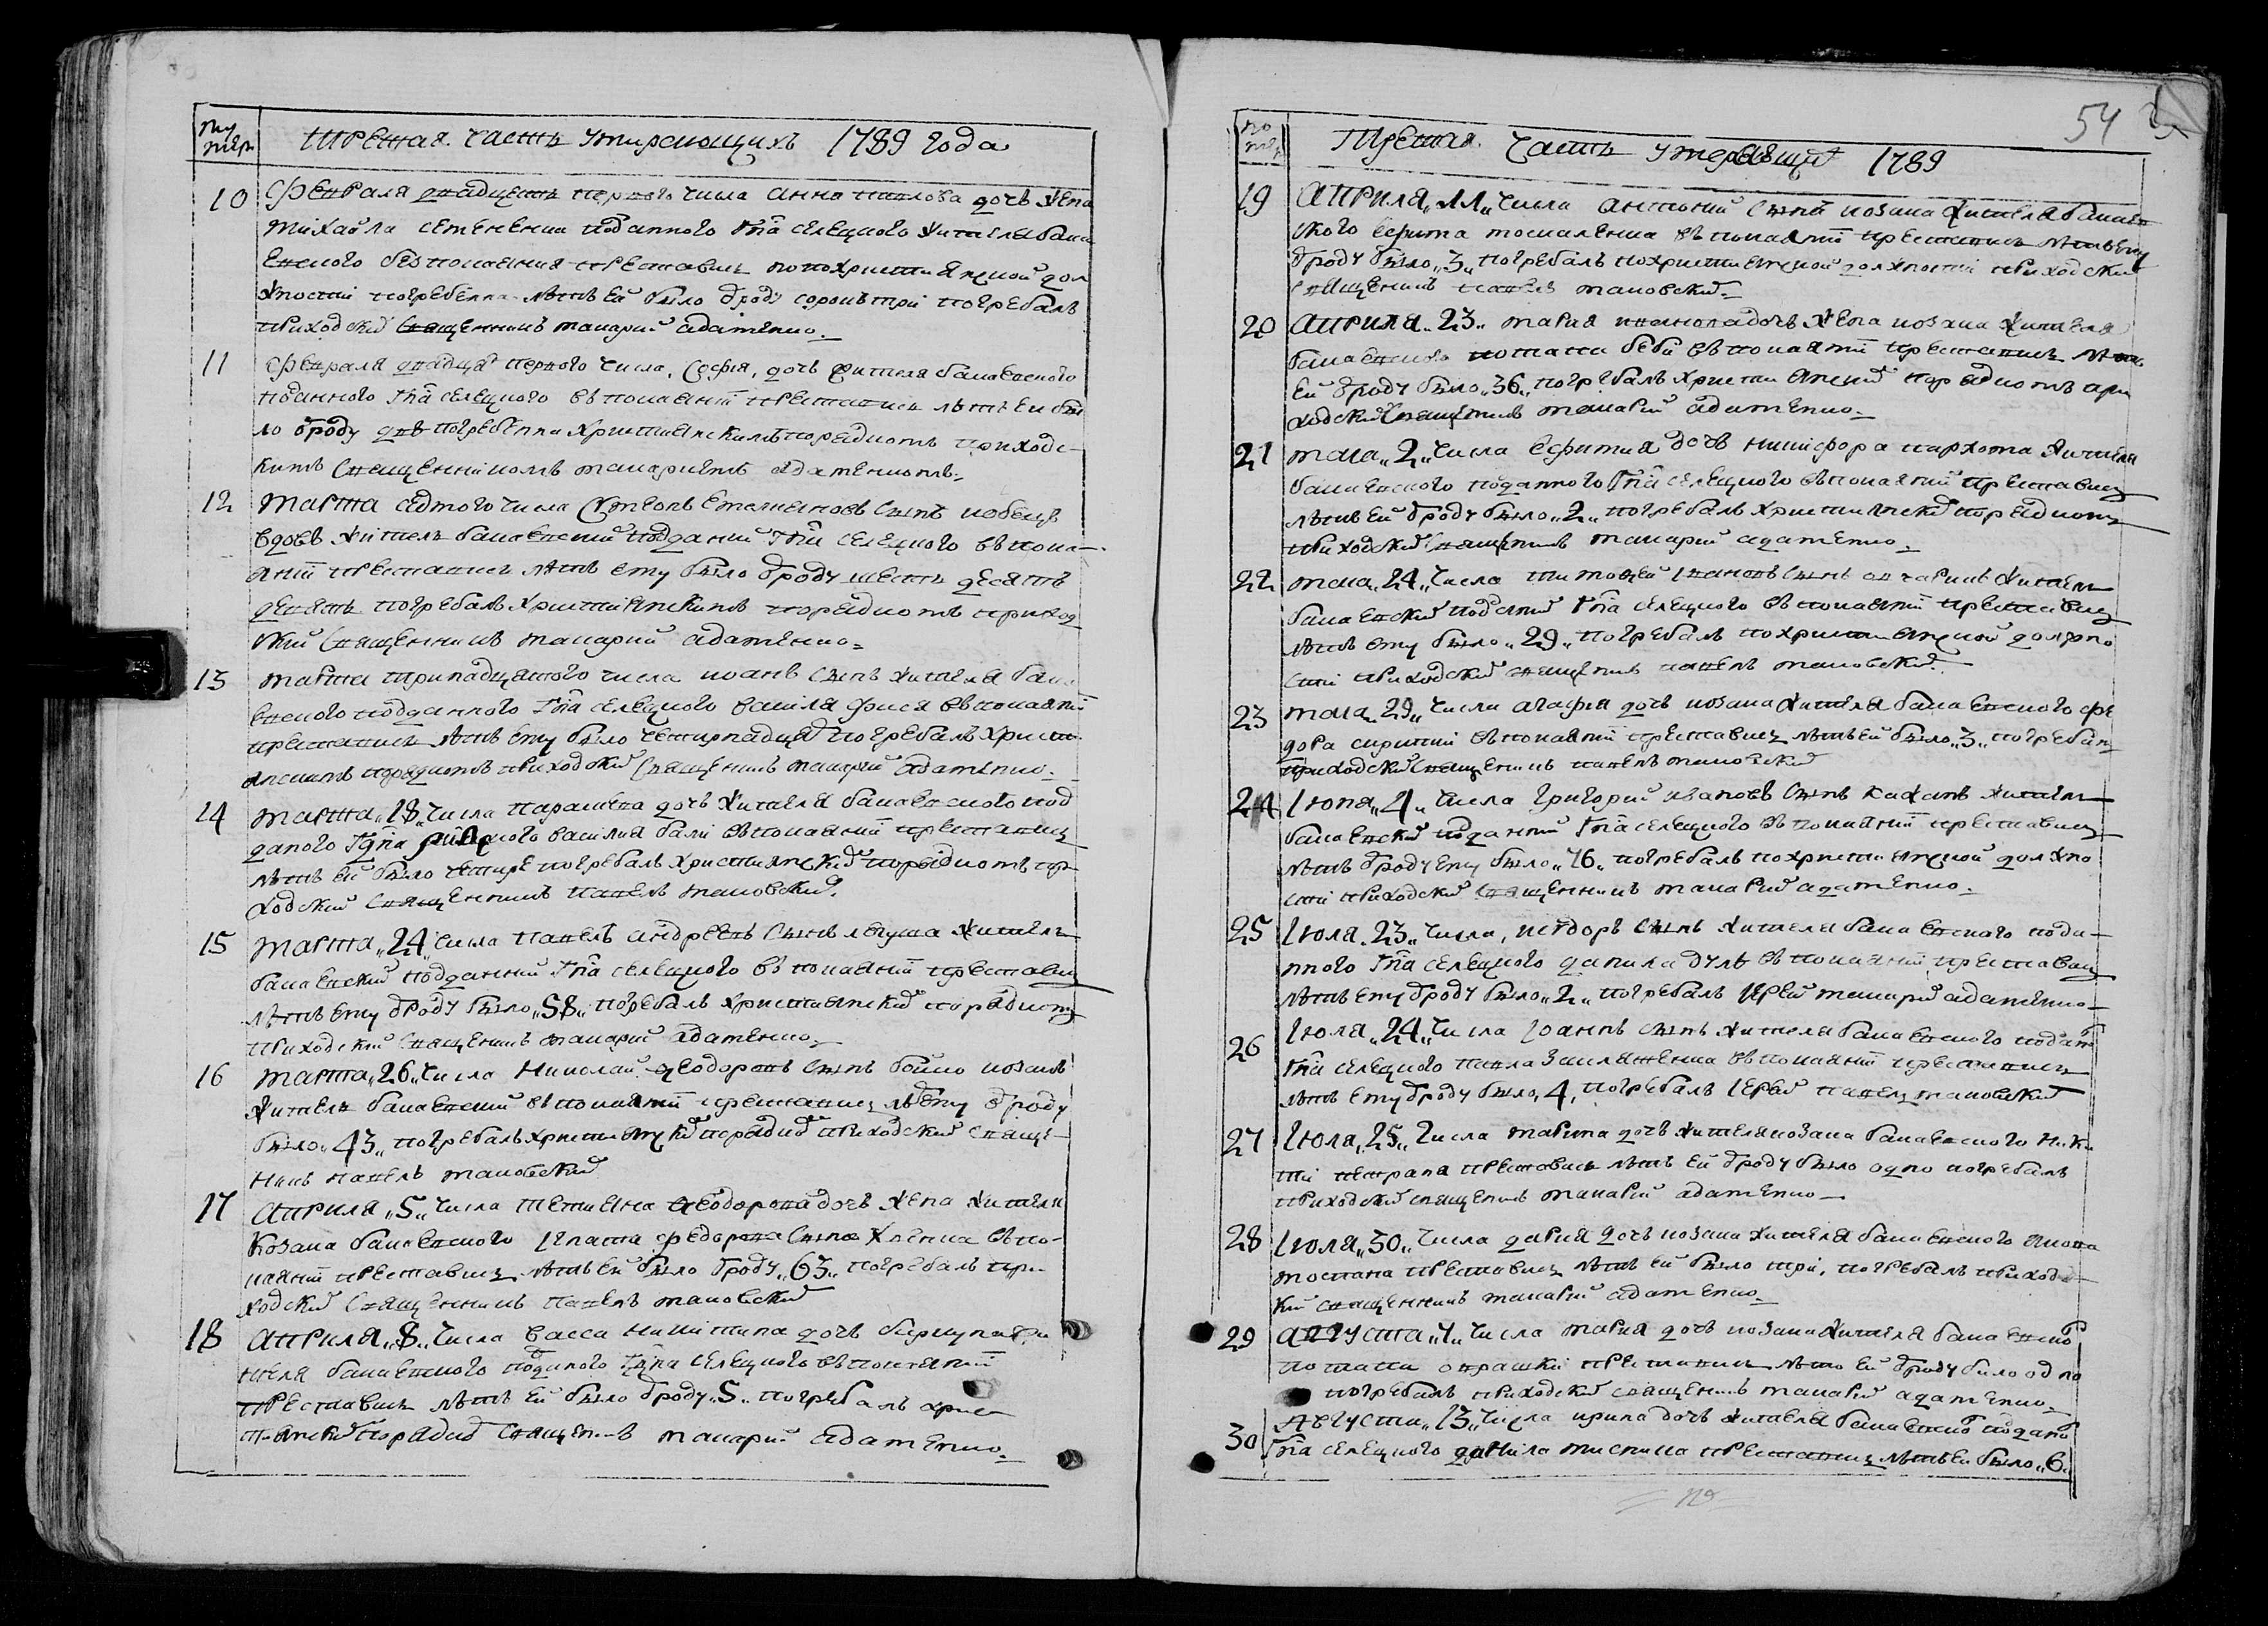 ну мер
Третая часть умирающихъ 1789 года
10 Февраля двадцеть первого числа анна павлова дочь жена
михайла семененкаподанного Гпна селецкого жителя бака
евского безпокаяния преставись похристиянской дол
жности погребенна лѣтъ ей было ѿроду сорокъ три погребалъ
приходский священникъ макарий адаменко
11 Февраля двадцат первого числа, софия, дочь жителя бакаевского
поданного Гпна селецкого въ покаянии преставись лѣтъ ей бы
ло ѿроду двѣ погребенна християнскимъ порядкомъ приходс
кимъ священникомъ макариемъ адаменкомъ
12 марта седмого числа Омелянов сынъ
вдовъ житель бакаевский подданий Гпна селецкого въ пока
янии преставись лѣтъ ему было ѿроду шесть десятъ
девять погребалъ християнскимъ порядкомъ приход
ский священникъ макарий адаменко
13 марта тринадцатого числа иоанъ сынъ жителя бака
евского подданного Гпна селецкого василя въ покаянии
преставись лѣтъ ему было четирнадцат погребалъ христи
янскимъ порядкомъ приходский священникъ макарий адаменко
14 марта „18„ числа параскева дочь жителя бакаевского под
даного Гдна василия бали въ покаянии преставись
лѣтъ ей было четире погребалъ християнский порядкомъ при
ходский священникъ павелъ маковский
15 марта „24„ числа павелъ андреевъ сынъ лепуша житель
бакаевский подданний Гпна селецкого въ покаянии преставись
лѣтъ ему ѿроду было „58„ погребалъ християнский порядкомъ
приходский священникъ макарий адаменко
16 марта „26„ числа николай феодоровъ сынъ бойко козакъ
житель бакаевский въ покаянии преставись лѣ ему ѿроду
было „43„ погребалъ християнский порядко приходский свяще
никъ павелъ маковский
17 Априля „5„ числа тетияна феодорова дочь жена жителя
козака бакаевского игната федорова сына въ по
каянии преставись лѣтъ ей было ѿроду „63„ погребалъ при
ходский священникъ павелъ маковский
18 Априля „8„ числа васса никитина дочь жи
теля бакаевского поданого Гдна селецкого въ покаянии
преставись лѣтъ ей было ѿроду „5„ погребалъ христ
янский порядко священикъ макарий адаменко
54
но мер
Третая часть умерающих 1789
19 Априля „11„ числа антоний сынъ козака жителя бакаев
ского ефима москаленка въ покаянии преставись лѣтъ ему
ѿроду было „3„ погребалъ похристиянской должности приходский
священикъ павелъ маковский
20 Априля „23„ мария дочь жена козака жителя
бакаевского потапа беби въ покаянии преставись лѣтъ
ей ѿроду было „36„ погребалъ християнский порядкомъ при
ходский священикъ макарий адаменко
21 мая „2„ числа ефимия дочь никифора пархома жителя
бакаевского поданного Гпна селецкого въ покаянии преставись
лѣтъ ей ѿроду было „2„ погребалъ християнский порядкомъ
приходский священикъ макарий адаменко
22 мая „24„ числа тимофей ивановъ сынъ житель
бакаевский поданий Гпна селецкого въ покаянии преставись
лѣтъ ему было „29„ погребалъ похристиянской должно
сти приходский священикъ павелъ маковский
23 мая „29„ числа агафия дочь козака жителя бакаевского фе
дора скрипки въ покаянии преставись лѣтъ ей было „3„ погребалъ
приходский священикъ павелъ маковский
24 Июня „4„ числа григорий ивановъ сынъ каханъ житель
бакаевский поданний Гпна селецкого въ покаянии преставись
лѣтъ ѿроду ему было „76„ погребалъ похристиянской должно
сти приходский священникъ макарий адаменко
25 Июля „23„ числа, исидоръ сынъ жителя бакаевского пода
нного Гпна селецкого данила въ покаянии преставись
лѣтъ ему ѿроду было „2„ погребалъ иерей макарий адаменко
26 Июля „24„ числа иоаннъ сынъ жителя бакаевского подано
Гпна селецкого павла въ покаянии преставись
лѣтъ ему ѿроду было „4„ погребалъ иерей павелъ маковский
27 Июля „25„ числа марина дочь жителя козака бакаевского ники
ти преставись лѣтъ ей ѿроду было одно погребалъ
приходский священикъ макарий адаменко
28 Июля „30„ числа дария дочь козака жителя бакаевского якова
преставись лѣтъ ей было три, погребалъ приходс
кий священникъ макарий адаменко
29 Августа „4„ числа мария дочь козака жителя бакаевско
потапа преставись лѣто ей ѿроду было одно
погребалъ приходский священикъ макарий адаменко
30 Августа „13„ числа ирина дочь жителя бакаевско подано
Гпна селецкого данила преставись лѣтъ ей было „6„